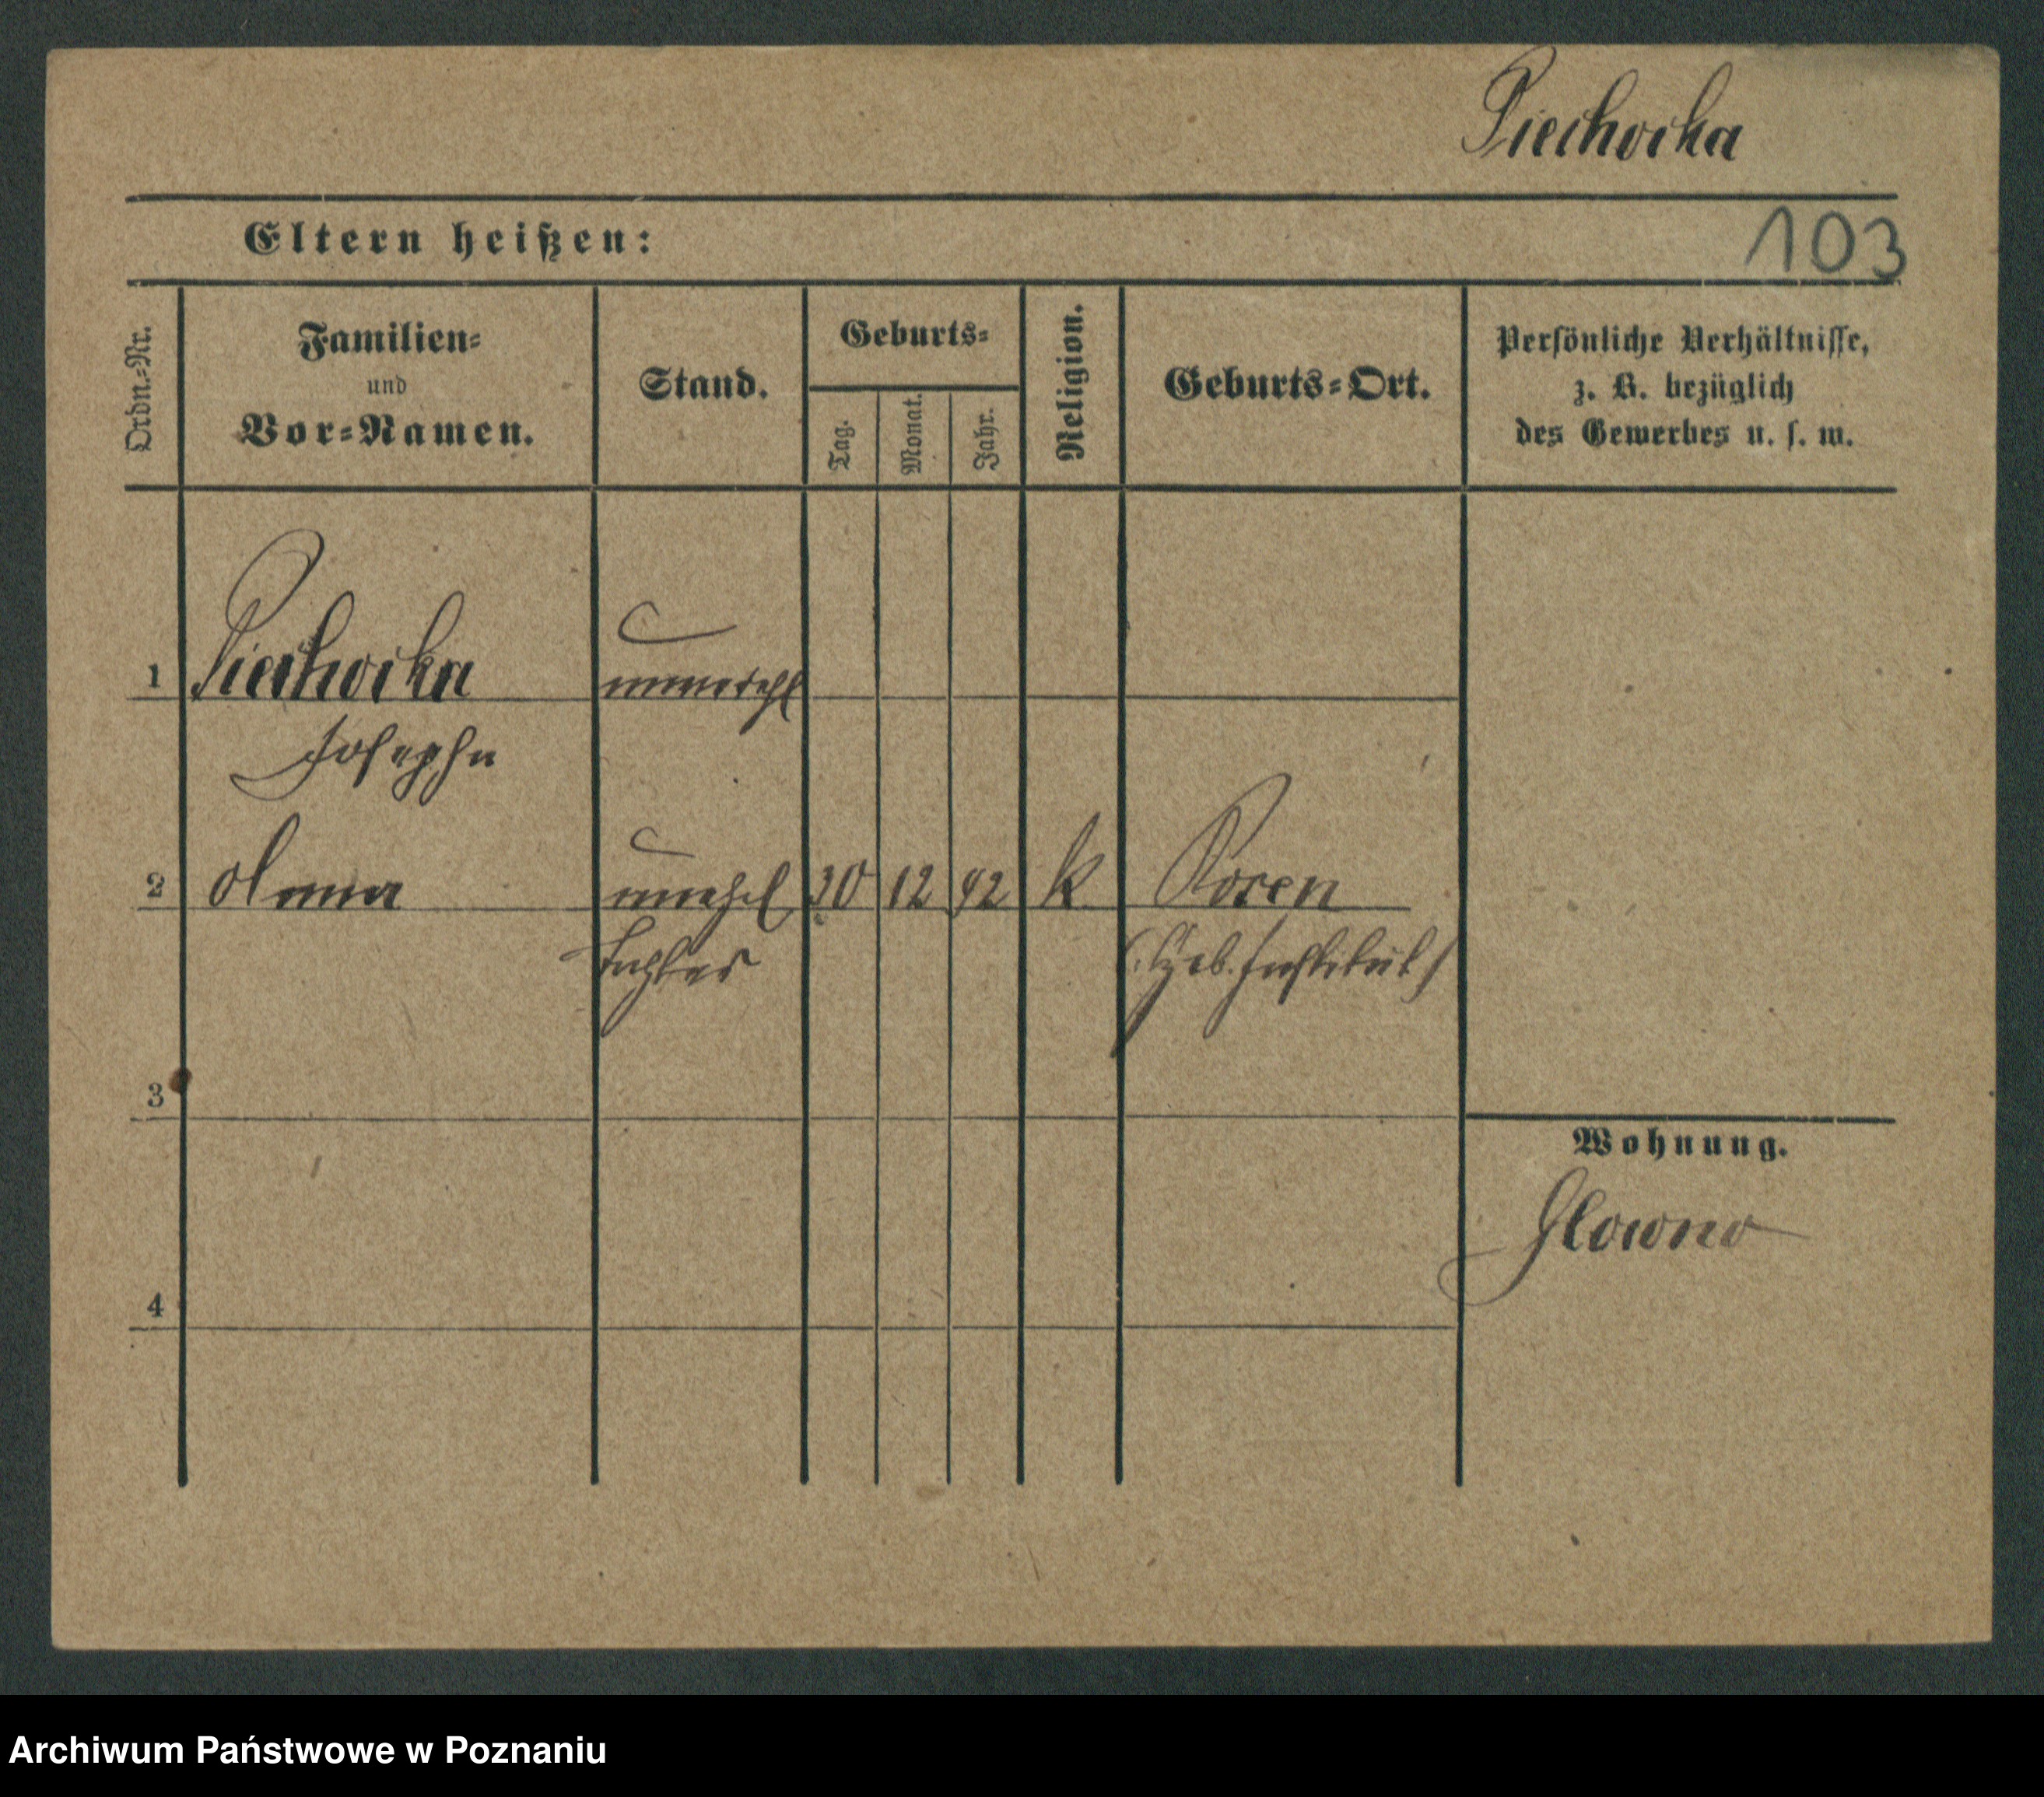 Piechocka
Eltern heißen:
103
Ordn.-Nr.
Familien-
und
Vor-Namen.
Stand.
Geburts-
Tag.
Monat.
Jahr.
Religion.
Geburts-Ort.
Persönliche Verhältnisse,
z. B. bezüglich
des Gewerbes u. s. w.
1 Piechocka unverehl
Josepha
2 Anna unehel 30 12 92 k Posen
Tochter (Heb. Institut)
3
Wohnung.
Glowno
4
Archiwum Państwowe w Poznaniu